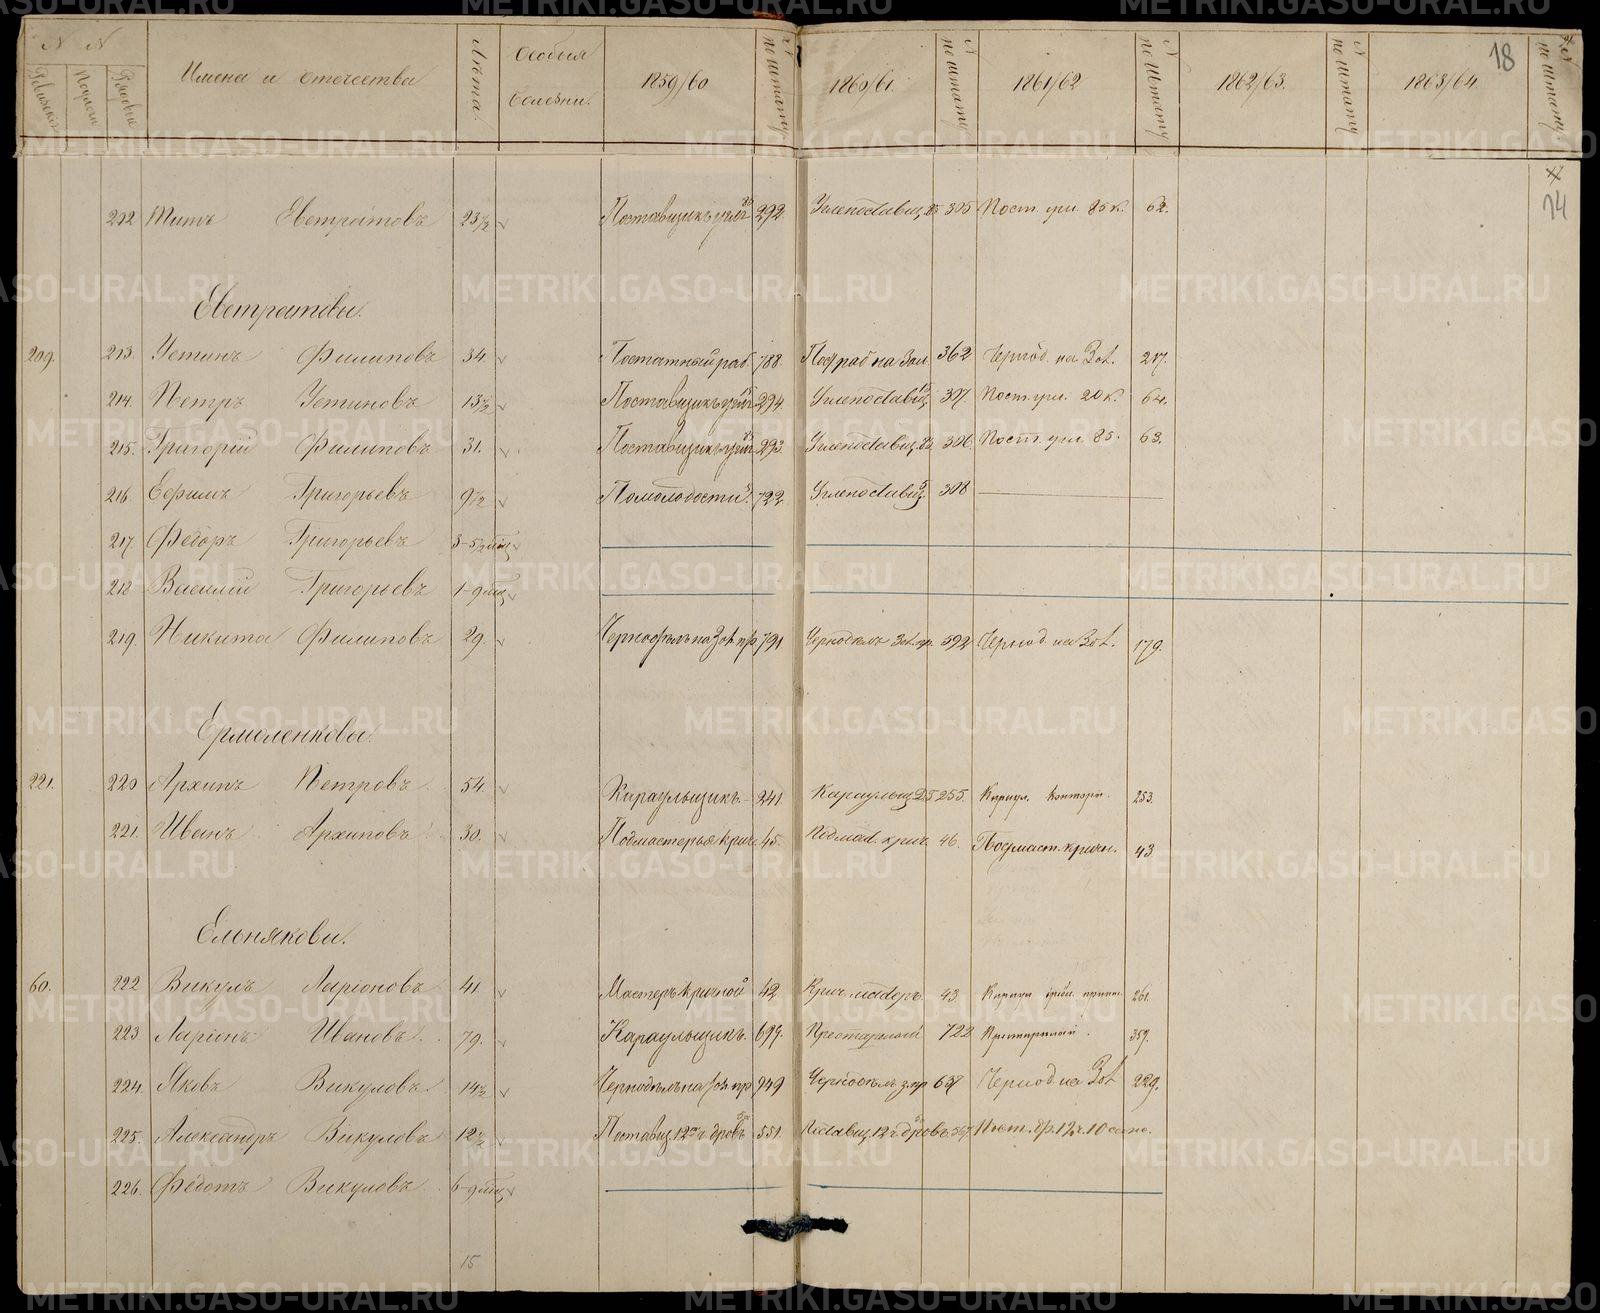 N N
Ревизскія Посроч. Рядовыя Имена и отчества Лѣта. Особыя болѣзни. 1859/60 N по штату 1860/61. N по штату 1861/62 N по штату 1862/63. N по штату 1863/64. N по штату
18
14
212 Титъ Евстратовъ 23½ Поставщикъ угля 292. Углепоставщ. 25 305 Пост. угл. 85 к. 62.
Евстратовы.
209. 213. Устинъ Филиповъ 34. Постатный раб. 788. Пост. раб. на Зол. 362 Чернод. на Зол. 217.
214. Петръ Устиновъ 13½ Поставщикъ угля 294. Углепоставщ. 15 307. Пост. угл. 20 к. 64.
215. Григорій Филиповъ 31. Поставщикъ угля 25 293. Углепоставщ. 25 306. Пост. угл. 85. 63.
216. Ефимъ Григорьевъ 9½ По молодости 722. Углепоставщ. 5 308
217. Ѳедоръ Григорьевъ 3-5½ мѣс.
218 Василій Григорьевъ 1-9 мѣс.
219. Никита Филиповъ 29. Чернодѣлъ на Зол. пр 791 Чернодѣлъ Зол. пр. 592 Чернод. на Зол. 179.
Ермоленковы.
221. 220 Архипъ Петровъ 54. Караульщикъ 241. Караульщ. 25 255. Караул. конторы. 253.
221. Иванъ Архиповъ 30. Подмастерья крич. 45. Подмаст. крич. 46. Подмаст. кричн. 43.
Ельняковы.
60. 222 Викулъ Ларіоновъ 41. Мастеръ кричной 42 Крич. мастеръ 43 261.
223. Ларіонъ Ивановъ 79. Караульщикъ. 699. Престарѣлый 722 Престарѣлый. 359.
224. Яковъ Викуловъ 14½ Чернодѣлъ на Зол. пр 949 Чернодѣлъ з. пр 637 Чернод. на Зол 229.
225. Александръ Викуловъ 12½ Поставщ. 12 ч дровъ 551. Поставщ. 12 ч дровъ 347. Пост. др. 12 ч. 10 саж.
226. Ѳедотъ Викуловъ 6-9 мѣс.
15
METRIKI.GASO-URAL.RU